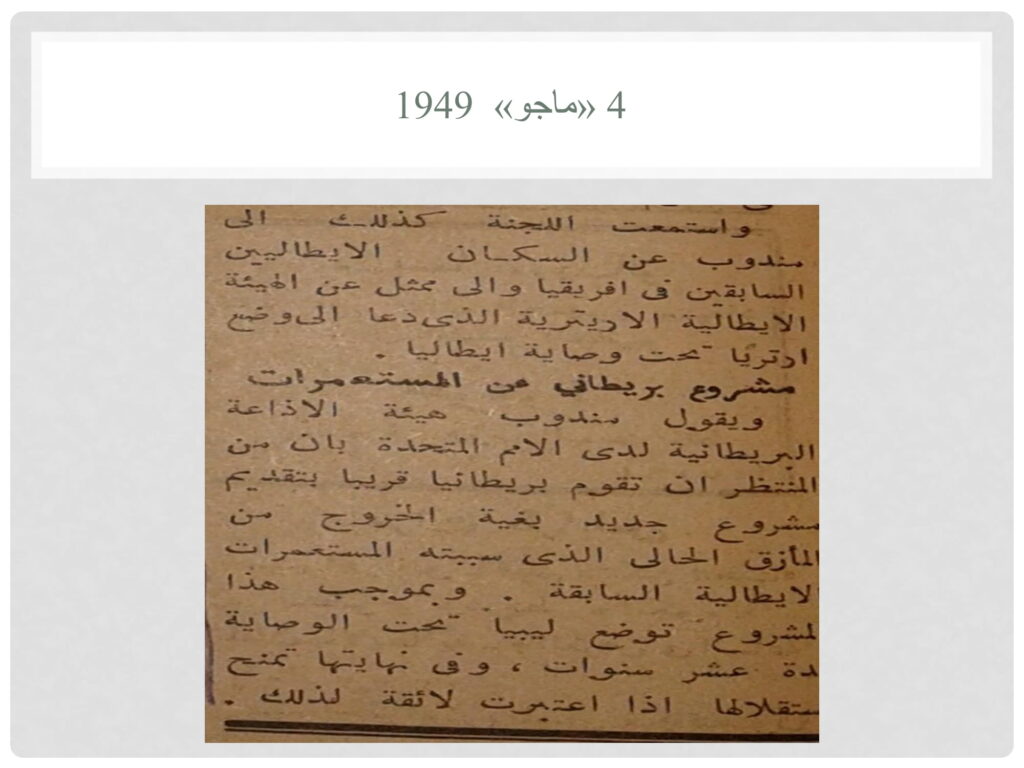 4 «ماجو» 1949
واستمعت اللجنة كذلك الى
مندوب عن السكان الايطاليين
السابقين فى افريقيا والى ممثل عن الهيئة
الايطالية الاريترية الذى دعا الى وضع
ارتريا تحت وصاية ايطاليا .
مشروع بريطاني عن المستعمرات
ويقول مندوب هيئة الاذاعة
البريطانية لدى الامم المتحدة بان من
المنتظر ان تقوم بريطانيا قريبا بتقديم
مشروع جديد بغية الخروج من
المأزق الحالى الذى سببته المستعمرات
لايطالية السابقة . وبموجب هذا
لمشروع توضع ليبيا تحت الوصاية
دة عشر سنوات ، وفى نهايتها تمنح
ستقلالها اذا اعتبرت لائقة لذلك .